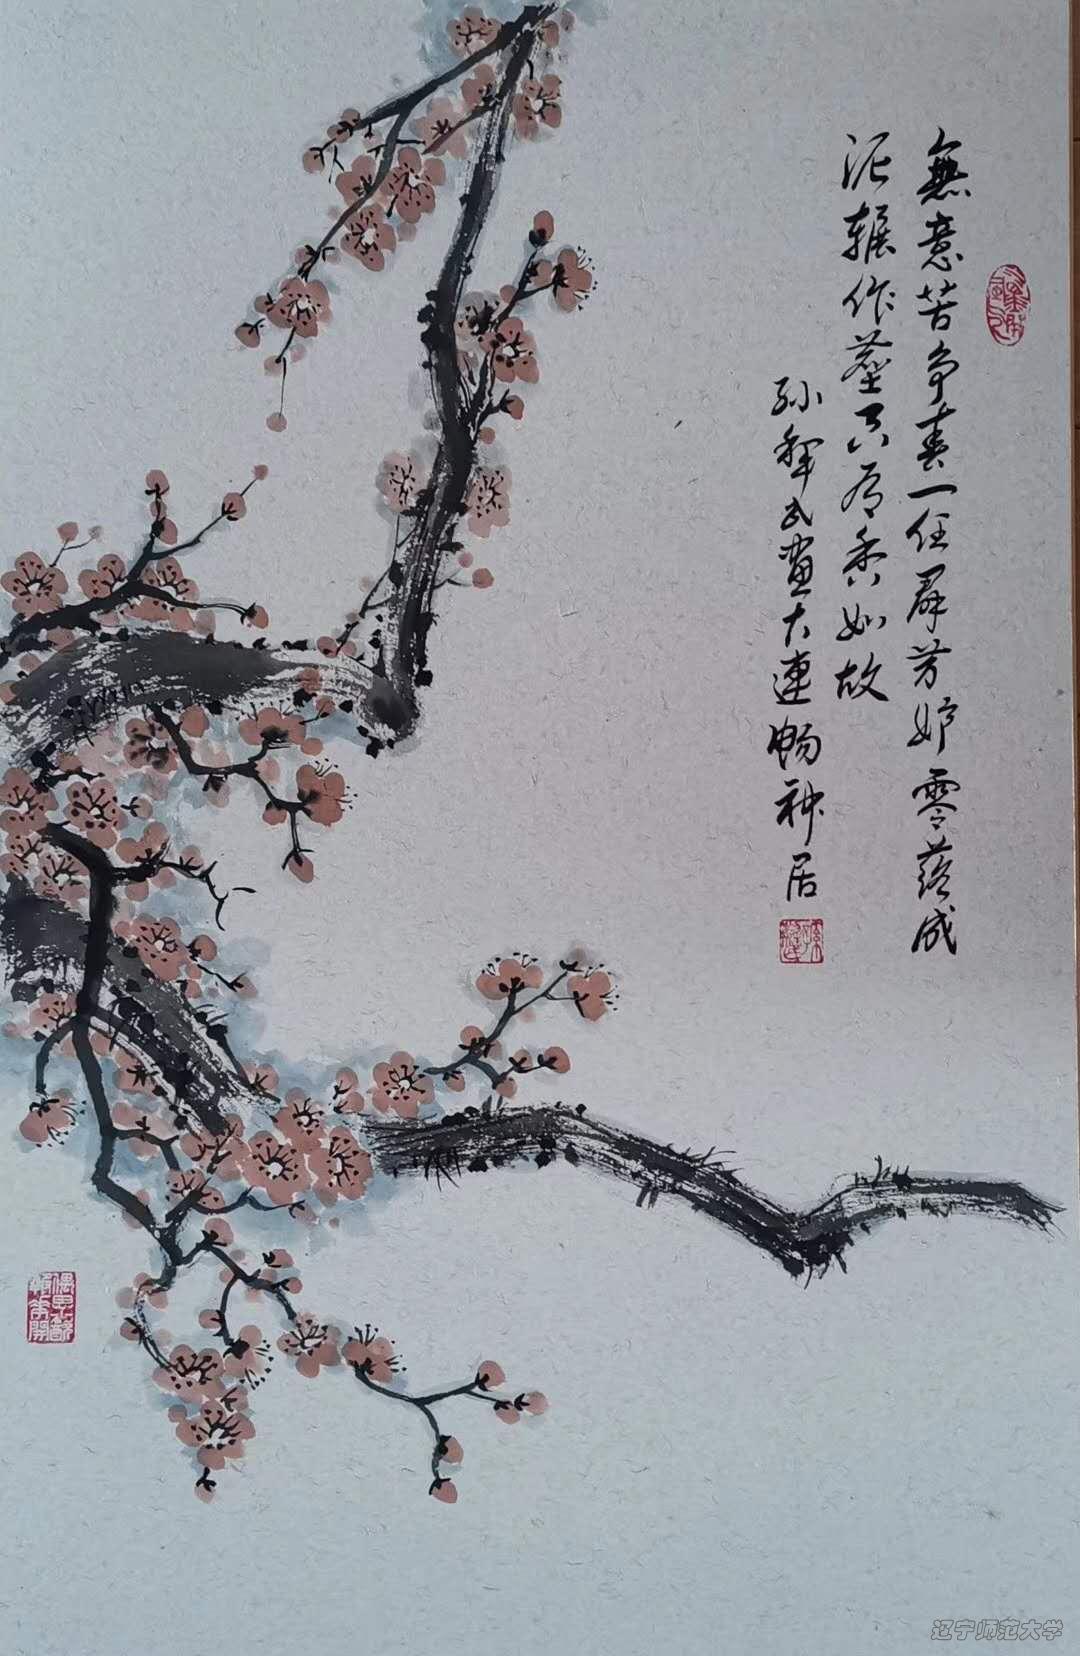 無意苦争春一任群芳妒零落成
泥辗作塵只有香如故
孙犟武画大連畅神居
辽宁师范大学